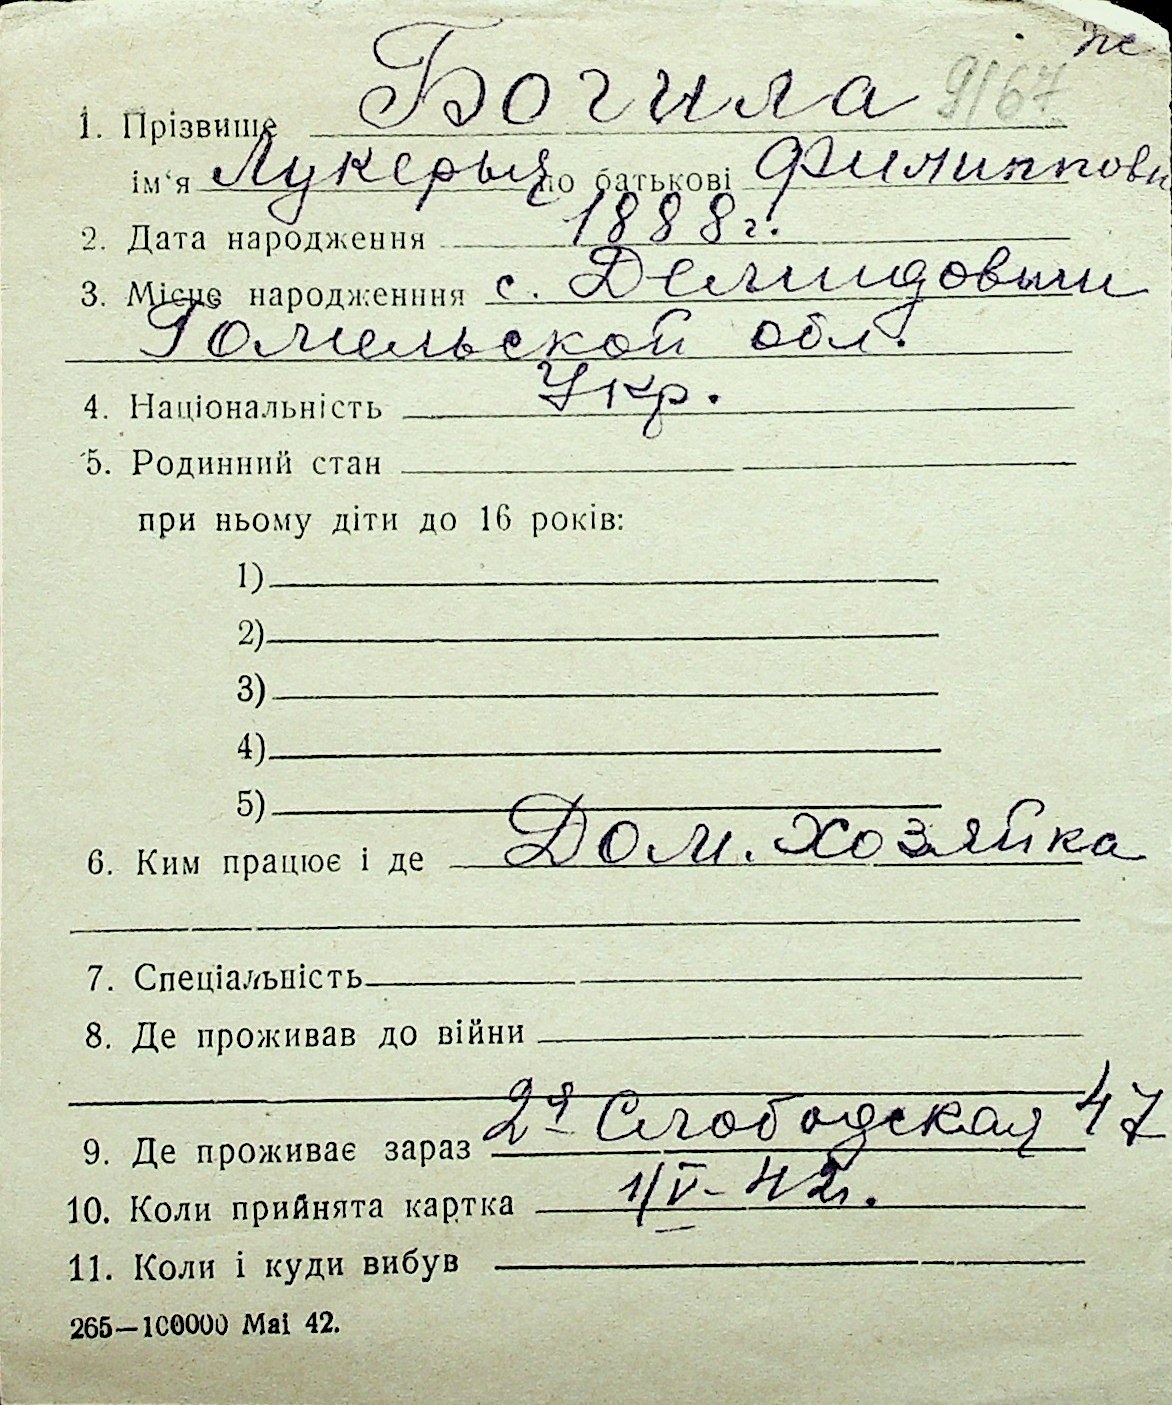 же
1. Прізвище Богила 9/67
ім‘я Лукерья по батькові Филиппови
2. Дата народження 1888г.
3. Місце народженння с. Демидовыи
Гомельской обл.
4. Національність Укр.
5. Родинний стан
при ньому діти до 16 років:
1)
2)
3)
4)
5)
6. Ким працює і де Дом. хозяйка
7. Спеціальність
8. Де проживав до війни
9. Де проживає зараз 2я Слободская 47
10. Коли прийнята картка 1/V-42г.
11. Коли і куди вибув
265—100000 Mai 42.